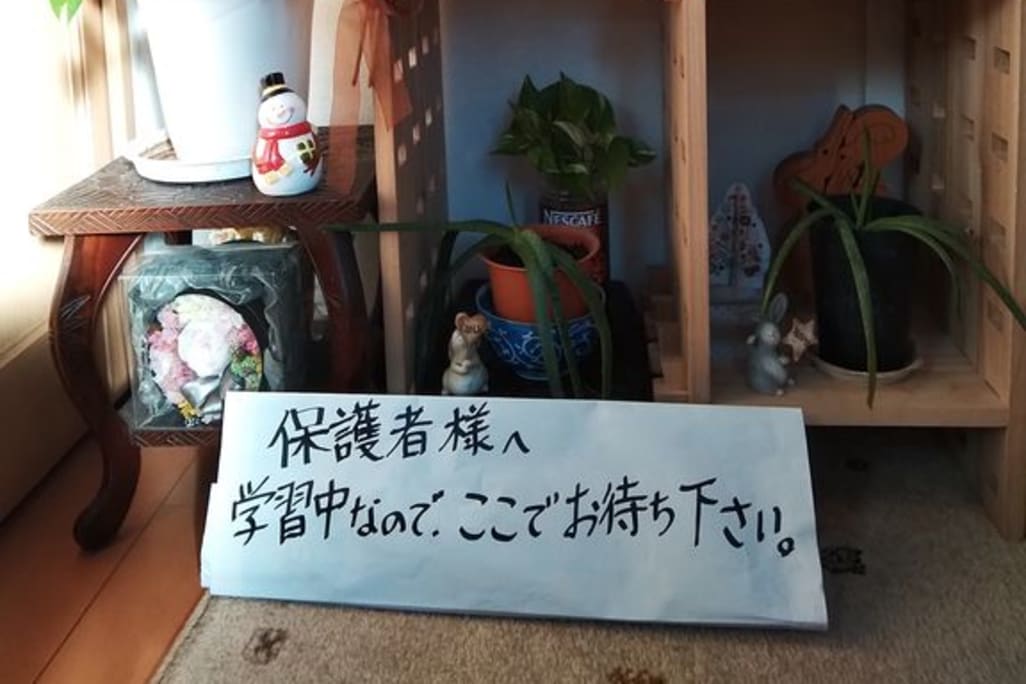 NESCAFÉ
保護者様へ
学習中なので、ここでお待ち下さい。